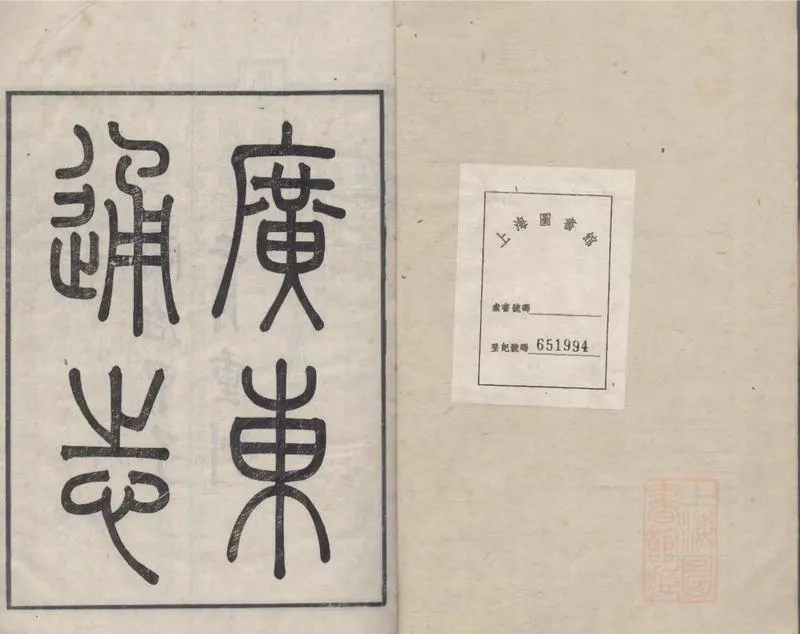 廣東
通志
上海圖書館
索書號碼
登記號碼 651994
上海圖
書館藏